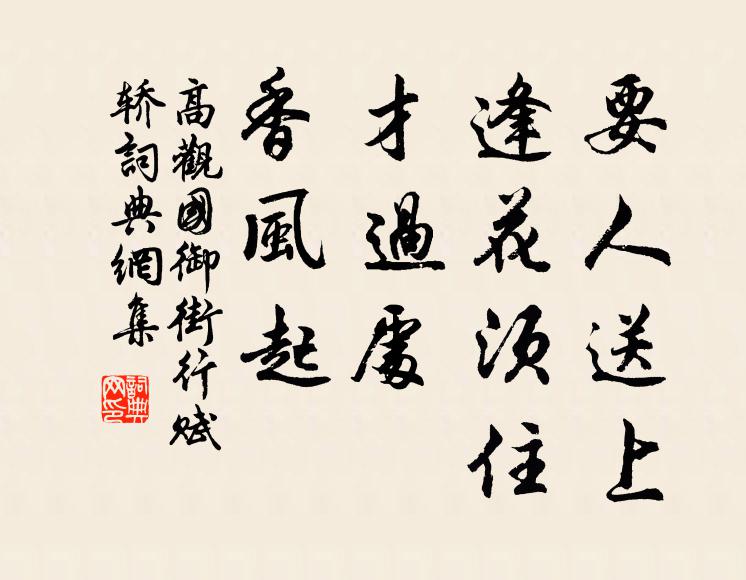 要人送上
逢花須住
才過處
香風起
高觀國御街行賦
轿詞典網集
詞典
网印